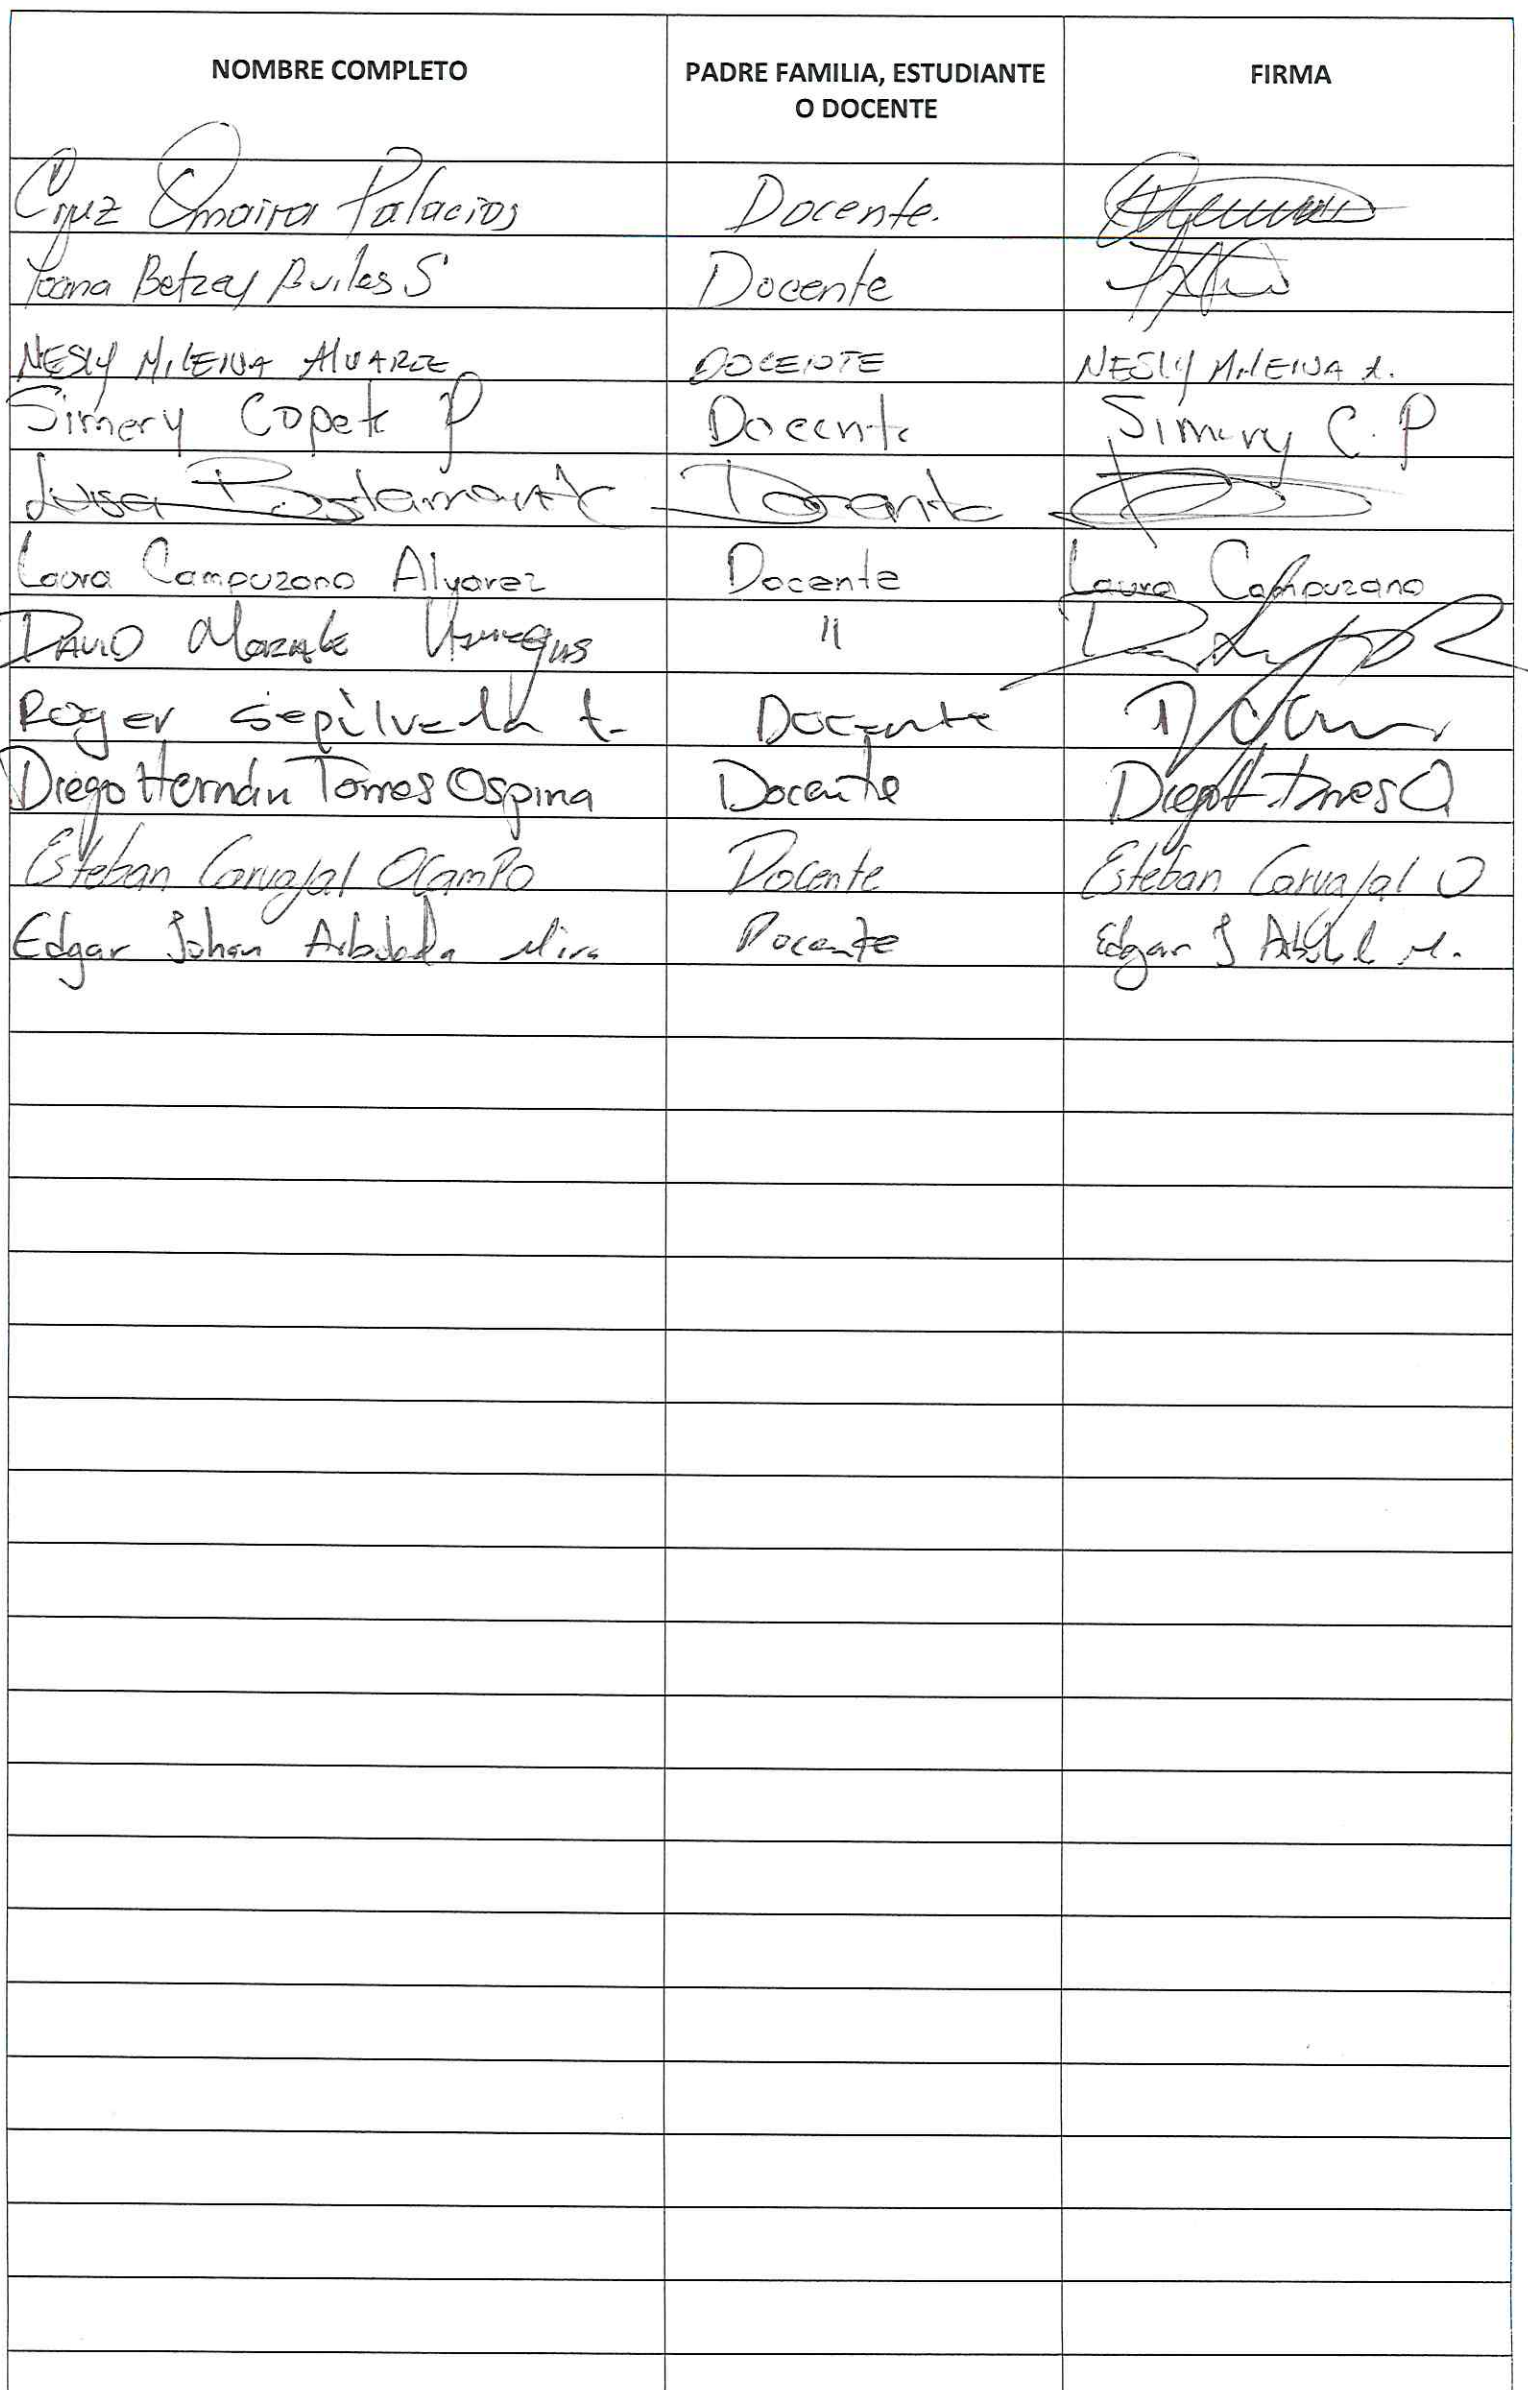 NOMBRE COMPLETO PADRE FAMILIA, ESTUDIANTE O DOCENTE FIRMA
Cruz Omaira Palacios Docente.
Yoana Betzey Aviles S Docente
NESly MILENA AlVAREZ DOCENTE NESly MILENA A.
Simery Copete P Docente Simery C.P
Luisa Bustamante Docente
Laura Campuzano Alvarez Docente Laura Campuzano
DAVID 11
Roger Sepulveda t. Docente
Diego Hernán Torres Ospina Docente Diego H. Torres O
Esteban Carvajal OcamPo Docente Esteban Carvajal O
Edgar Johan Arboleda Mira Docente Edgar J M.